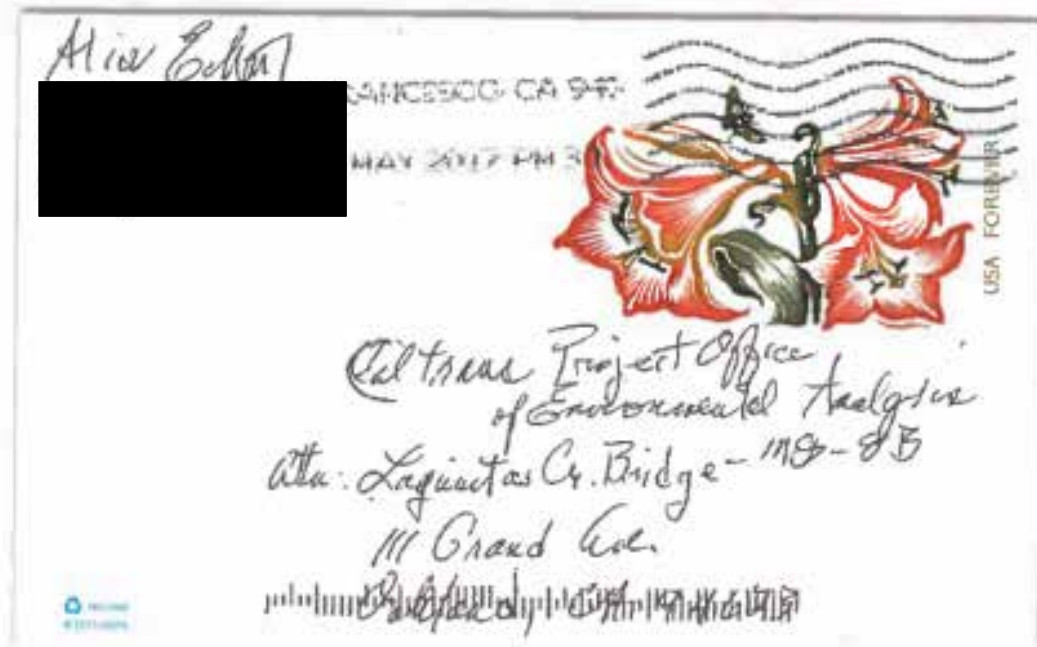 Alice
FRANCISCO CA 94
MAY 2017 PM 3
USA FOREVER
Caltrans Project Office
of Environmental Analysis
Attn: Lagunitas Cr. Bridge - MS-8B
111 Grand Ave.
Oakland, CA